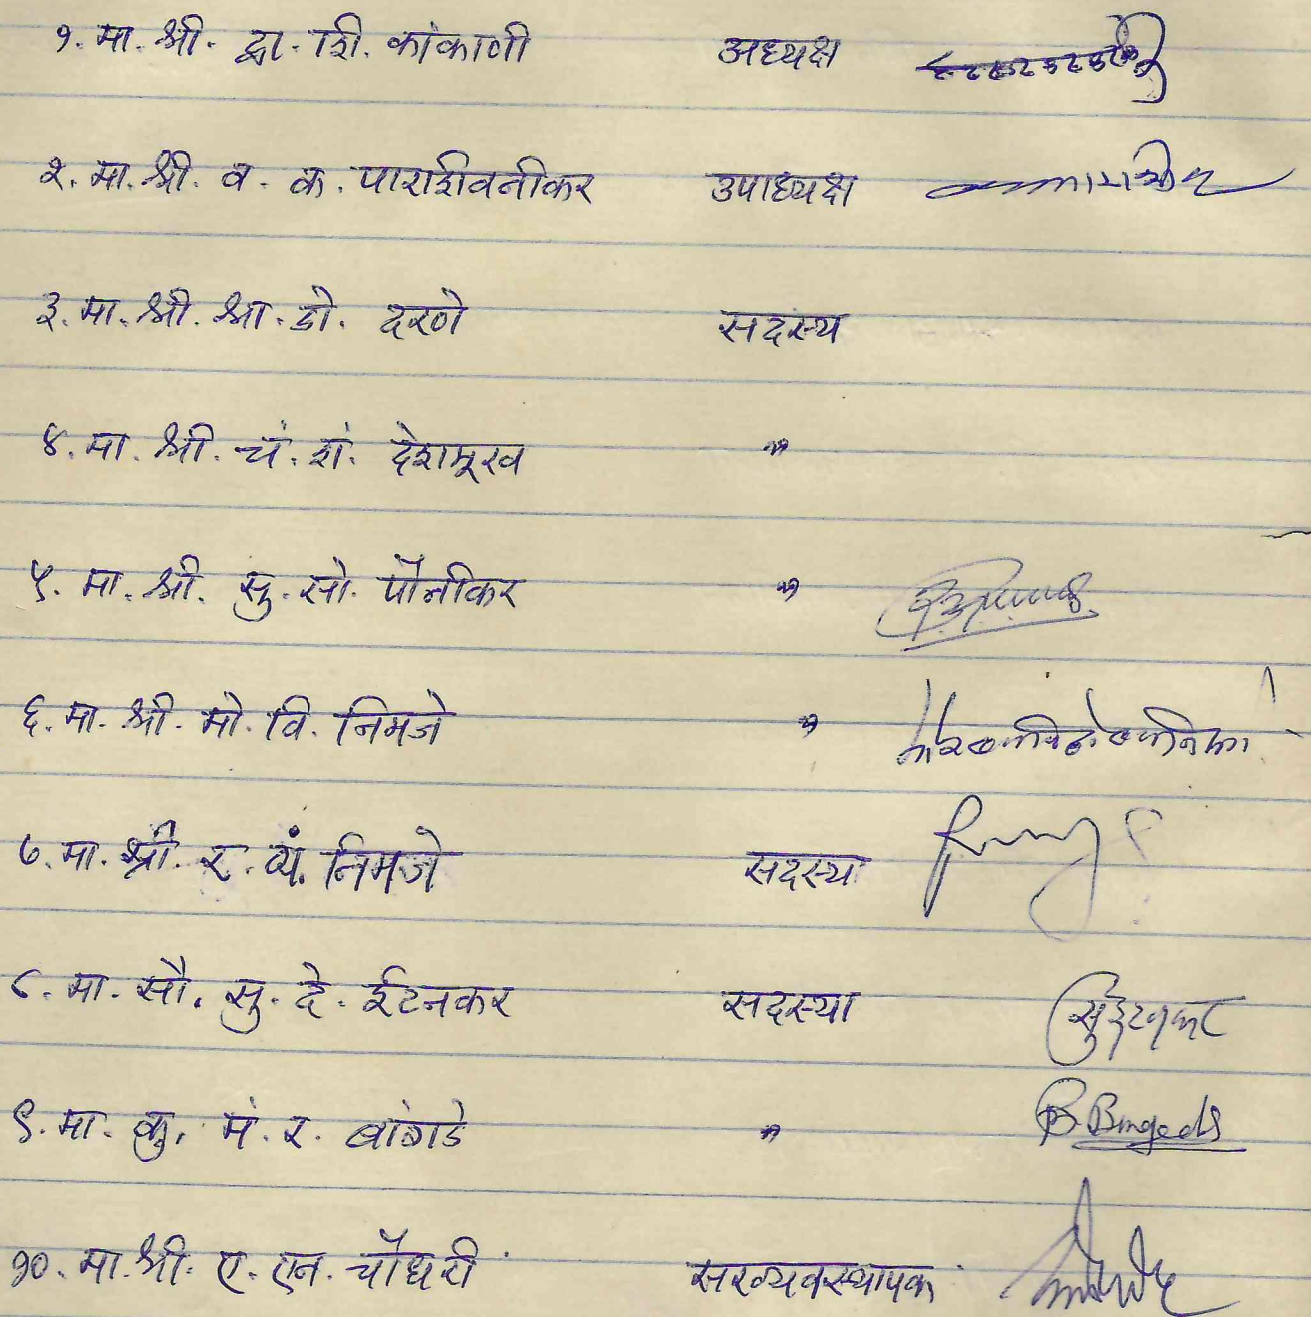 १. मा. श्री. द्वा. शि. कांकाणी अध्यक्ष
२. मा. श्री. व. क. पाराशीवनीकर उपाध्यक्ष
३. मा. श्री. श्रा. डो. दरणे सदस्य
४. मा. श्री. चं. शं. देशमूख "
५. मा. श्री. सु. सो. पौनीकर "
६. मा. श्री. मो. वि. निमजे "
७. मा. श्री. र. व्यं. निमजे सदस्या
८. मा. सौ. सु. दे. ईटनकर सदस्या सु ईटनकर
९. मा. कु. मं. र. बांगडे " B. Bangade
१०. मा. श्री. ए. एन. चौधरी सरव्यवस्थापक